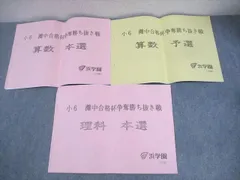 小6 灘中合格杯争奪勝ち抜き戦
算数 本選
小6 灘中合格杯争奪勝ち抜き戦
算数 予選
浜学園
小6 灘中合格杯争奪勝ち抜き戦
理科 本選
浜学園